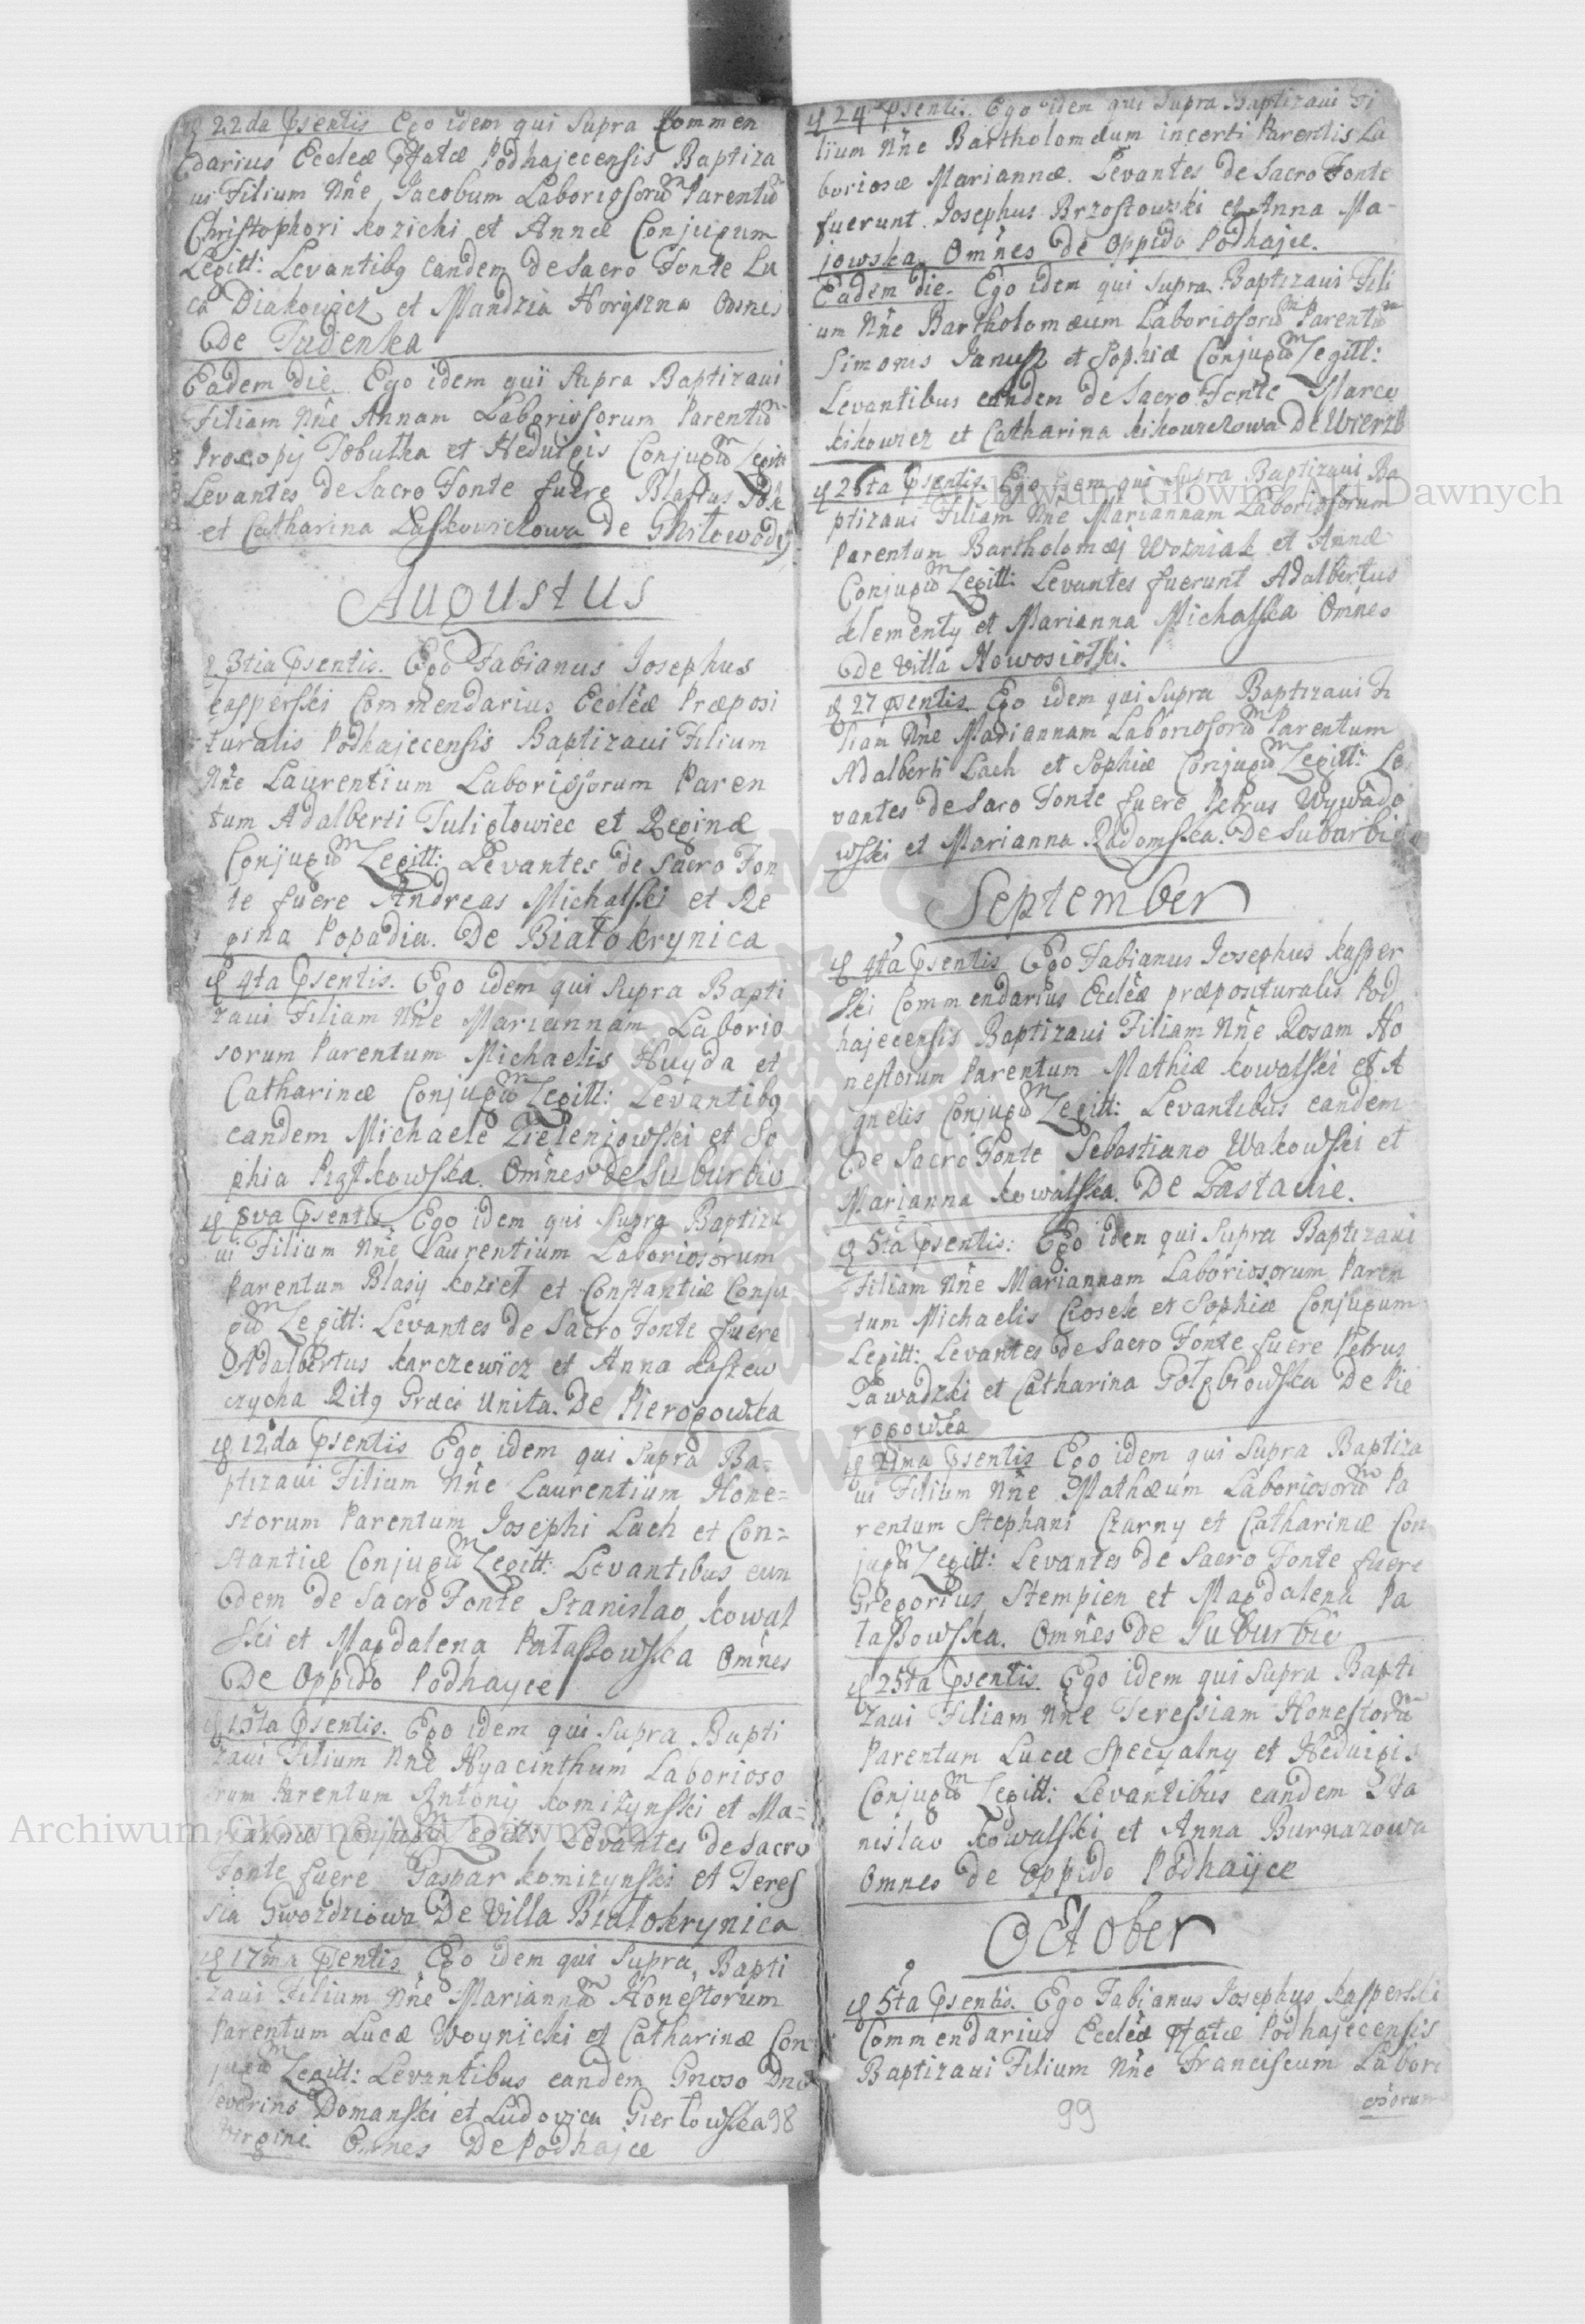 22da Psentis Ego idem qui Supra Commen
darius Eccleæ Pfatæ Podhajecensis Baptiza
ui Filium Nne Jacobum Laboriosorũ Parentũ
Christophori Kozichi et Annæ Conjugum
Legitt: Levantibg eandem de Sacro Fonte Lu
ca Diakowicz et Mandzia Horyszna Omnes
De Tudenka
Eadem die Ego idem qui Supra Baptizaui
Filiam Nne Annam Laboriosorum Parentũ
Procopij Tobutka et Heduigis Conjugũ Legitt
Levantes de Sacro Fonte fuere Blasius
et Catharina Laskowickowa de Gnitowody
Augustus
3tia Psentis. Ego Fabianus Josephus
Kasperski Commendarius Eccleæ Præposi
turalis Podhajecensis Baptizaui Filium
Nne Laurentium Laboriosorum Paren
tum Adalberti Tuliglowiec et Reginæ
Conjugũ Legitt: Levantes de Sacro Fon
te fuere Andreas Michalski et Re
gina Popadia. De Białokrynica
4ta Psentis. Ego idem qui Supra Bapti
zaui Filiam Nne Mariannam Laborio
sorum Parentum Michaelis Huyda et
Catharinæ Conjugũ Legitt: Levantibg
eandem Michaele Zieleniowski et So
phia Piątkowska. Omnes De Suburbio
8va Psentis Ego idem qui Supra Baptiza
ui Filium Nne Laurentium Laboriosorum
Parentum Blasij Kozieł et Constantiæ Conju
gũ Legitt: Levantes de Sacro Fonte fuere
Adalbertus Karczewicz et Anna Kaszew
czycha Ritg Græci Unita. De Pierogowka
12da Psentis Ego idem qui Supra Ba=
ptizaui Filium Nne Laurentium Hone=
storum Parentum Josephi Lach et Con=
stantiæ Conjugũ Legitt: Levantibus eun
dem de Sacro Fonte Stanislao Kowal
ski et Magdalena Patassowska Omnes
De Oppido Podhayce
15ta Psentis. Ego idem qui Supra Bapti
zaui Filium Nne Hyacinthum Laborioso
rum Parentum Antonij Komizynski et Ma=
riannæ Conjugũ Legitt: Levantes de Sacro
Fonte fuere Gaspar Komizynski et Teres
sia Gwozdziowa De Villa Białokrynica
17ma Psentis Ego idem qui Supra Bapti
zaui Filium Nne Mariannã Honestorum
Parentum Lucæ Woynicki et Catharinæ Con
jugũ Legitt: Levantibus eandem Gnoso Dno
everino Domanski et Ludovica Gierłowska 98
Virgine. Omnes De Podhajce
24 Psentis. Ego idem qui Supra Baptizaui Fi
lium Nne Bartholomæum incerti Parentis La
boriosæ Mariannæ. Levantes de Sacro Fonte
fuerunt Josephus Brzostowski et Anna Ma=
jowska Omnes de Oppido Podhajce.
Eadem die. Ego idem qui Supra Baptizaui Fili
um Nne Bartholomæum Laboriosorũ Parentũ
Simonis Janusz et Sophiæ Conjugũ Legitt:
Levantibus eandem de Sacro Fonte Marco
Kikowicz et Catharina Kikowiczowa De Wierzb
Psentis. Ego idem qui Supra Baptizaui Ba
ptizaui Filiam Nne Mariannam Laboriosorum
Parentum Bartholomæj Wozniak et Annæ
Conjugũ Legitt: Levantes fuerunt Adalbertus
Klementy et Marianna Michalska Omnes
De Villa Nowosiołki.
27 Psentis Ego idem qui Supra Baptizaui Fi
liam Nne Mariannam Laboriosorũ Parentum
Adalberti Lach et Sophiæ Conjugũ Legitt: Le
vantes de Saro Fonte fuere Petrus Wywado
wski et Marianna Radomska. De Suburbio
September
4ta Psentis Ego Fabianus Josephus Kasper
ski Commendarius Eccleæ præposituralis Pod
hajecensis Baptizaui Filiam Nne Rosam Ho
nestorum Parentum Mathiæ Kowalski et A
gnetis Conjugũ Legitt: Levantibus eandem
de Sacro Fonte Sebastiano Wakowski et
Marianna Kowalska. De Zastawie.
5ta Psentis: Ego idem qui Supra Baptizaui
Filiam Nne Mariannam Laboriosorum Paren
tum Michaelis Czosek et Sophiæ Conjugum
Legitt: Levantes de Sacro Fonte fuere Petrus
Zawadzki et Catharina Gołębiowska De Pie
rogowka
21ma Psentis Ego idem qui Supra Baptiza
ui Filium Nne Mathæum Laboriosorũ Pa
rentum Stephani Czarny et Catharinæ Con
jugũ Legitt: Levantes de Sacro Fonte fuere
Gregorius Stempien et Magdalena Pa
tassowska. Omnes De Suburbio
25ta Psentis. Ego idem qui Supra Bapti
zaui Filiam Nne Teressiam Honestorũ
Parentum Lucæ Specyalny et Heduigis
Conjugũ Legitt: Levantibus eandem Sta
nislao Kowalski et Anna Burnazowa
Omnes de Oppido Podhayce
October
5ta Psentis. Ego Fabianus Josephus Kasperski
Commendarius Eccleæ Pfatæ Podhajecensis
Baptizaui Filium Nne Franciscum Labori
osorum
99
Archiwum Główne Akt Dawnych
Archiwum Główne Akt Dawnych